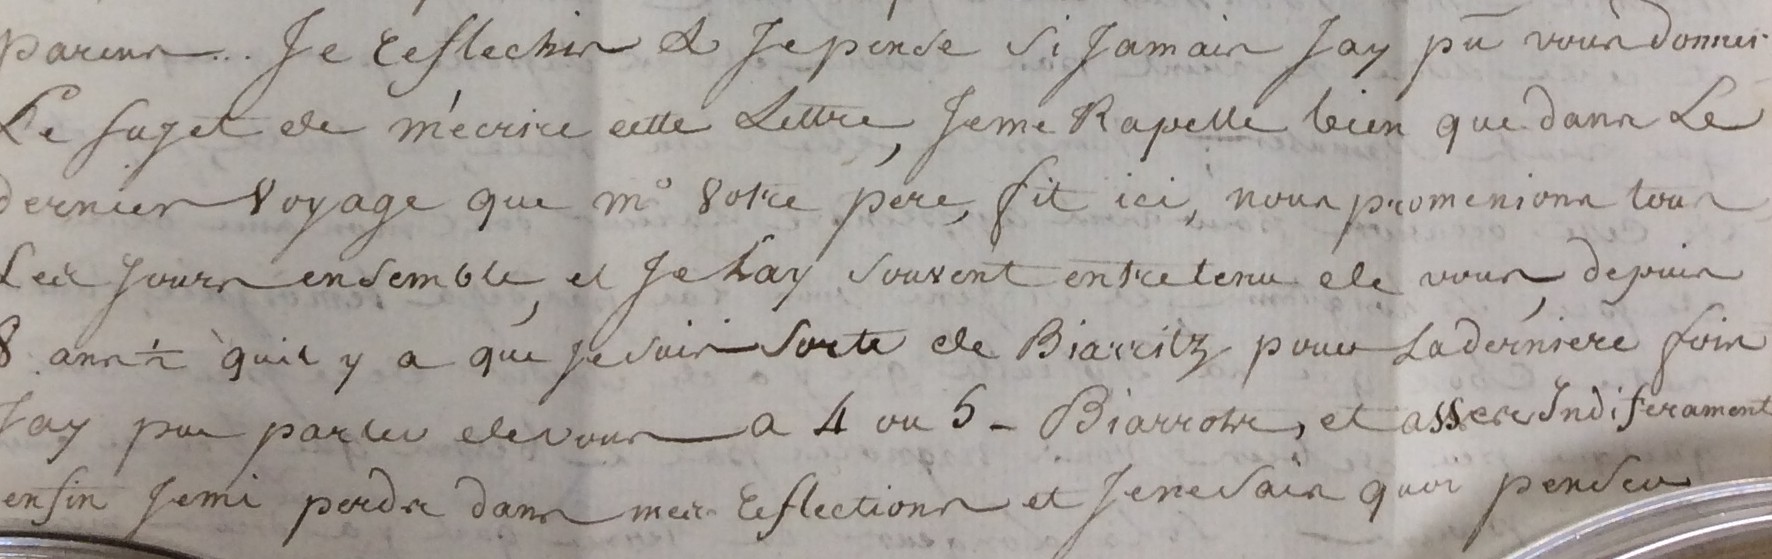 parens... Je Reflechis & Je pense si Jamais Jay pû vous donner
Le sujet de m'ecrire cette Lettre, Je me Rapelle bien que dans Le
dernier Voyage que mr Votre pere, fit ici, nous promenions tous
Les Jours ensemble, et Je Lay souvent entretenu de vous, depuis
8 ans ½ quil y a que Je suis sorte de Biarritz pour La derniere fois
Jay pu parler de vous a 4 ou 5 - Biarrots, et asses Indiferament
enfin Je mi perds dans mes Reflections et Je ne sais quoi penser